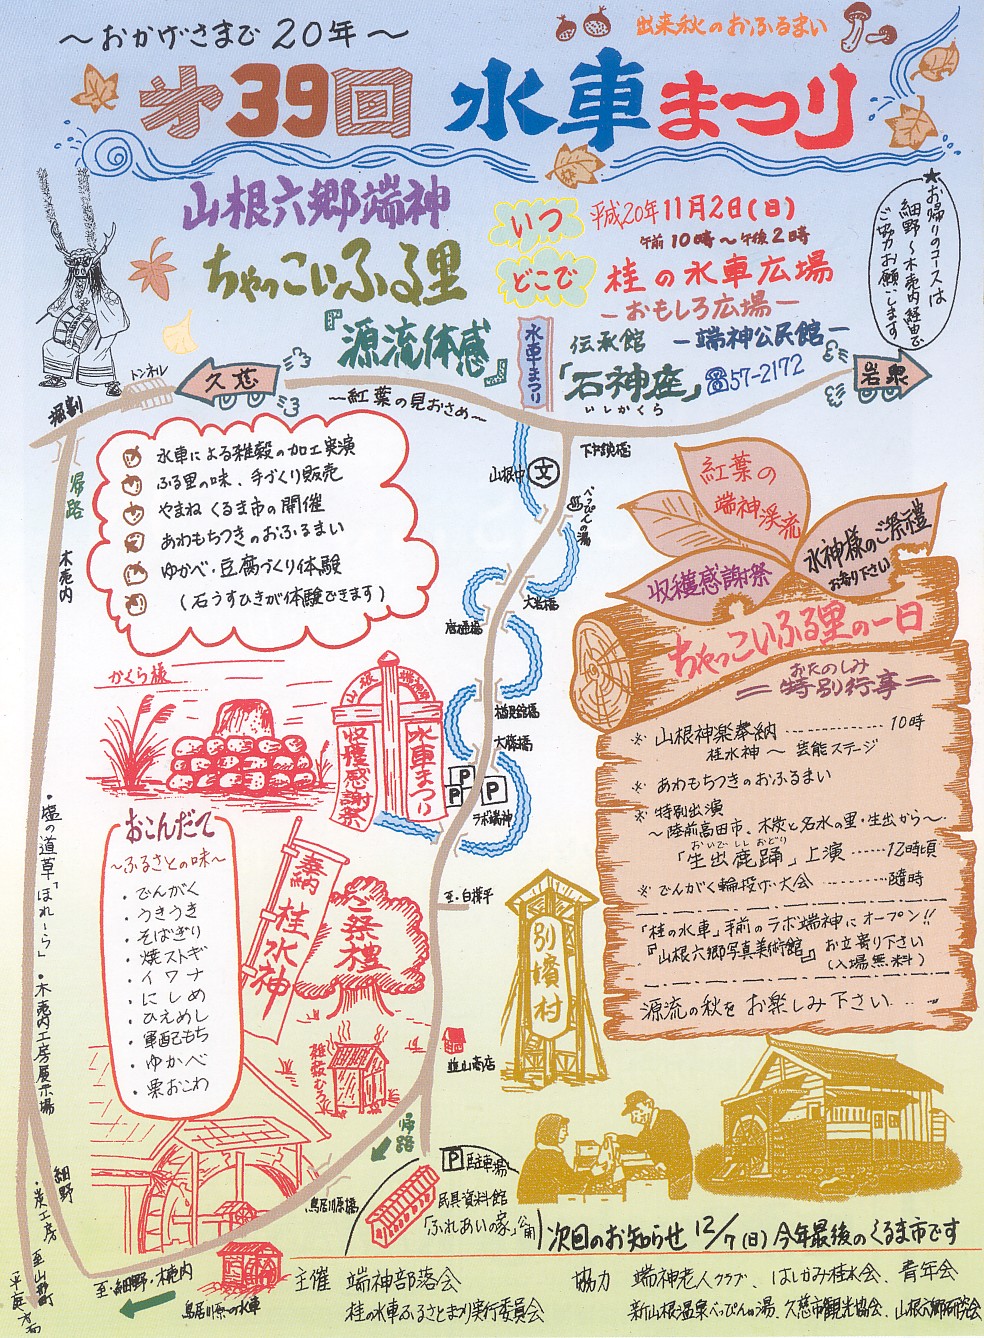 ～おかげさまで20年～
出来秋のおふるまい
第39回 水車まつり
山根六郷端神
ちゃっこいふる里
『源流体感』
いつ 平成20年11月2日(日)
午前10時～午後2時
どこで 桂の水車広場
－おもしろ広場－
伝承館 －端神公民館－
「石神座」☎57-2172
いしかくら
水車まつり
★お帰りのコースは
細野～木売内経由で
ご協力お願いします
トンネル
久慈
岩泉
～紅葉の見おさめ～
帰路
木売内
水車による雑穀の加工実演
ふる里の味、手づくり販売
やまねくるま市の開催
あわもちつきのおふるまい
ゆかべ・豆腐づくり体験
(石うすひきが体験できます)
山根中
文
下戸鎖橋
べっぴんの湯
大岩橋
大藤橋
P
P
P
ラボ端神
至・白樺平
紅葉の
端神渓流
収穫感謝祭
水神様のご祭禮
お寄り下さい
ちゃっこいふる里の一日
おたのしみ
＝特別行事＝
※ 山根神楽奉納 ------- 10時
桂水神～芸能ステージ
※ あわもちつきのおふるまい
※ 特別出演
～陸前高田市、木炭と名水の里・生出から～
おいで ししおどり
「生出鹿踊」上演 ------ 12時頃
※ でんがく輪投げ大会 ------- 随時
「桂の水車」手前のラボ端神にオープン!!
『山根六郷写真美術館』お立寄り下さい
(入場無料)
源流の秋をお楽しみ下さい...
かくら様
山根端神
収穫感謝祭
水車まつり
おこんだて
～ふるさとの味～
・でんがく
・うきうき
・そばぎり
・焼ストギ
・イワナ
・にしめ
・ひえめし
・軍配もち
・ゆかべ
・栗おこわ
奉納 桂水神
ご祭禮
雑穀むろ
別墳村
・塩の道草「ほれーら」
・木売内工房展示場
細野
・炭工房
至山形町
平庭高
帰路
P 駐車場
民具資料館
「ふれあいの家」公開
鳥居川原橋
鳥居川原の水車
至・細野・木売内
次回のお知らせ 12/7(日) 今年最後のくるま市です
主催 端神部落会
桂の水車ふるさとまつり実行委員会
協力 端神老人クラブ、はしかみ桂水会、青年会
新山根温泉べっぴんの湯、久慈市観光協会、山根六郷研究会